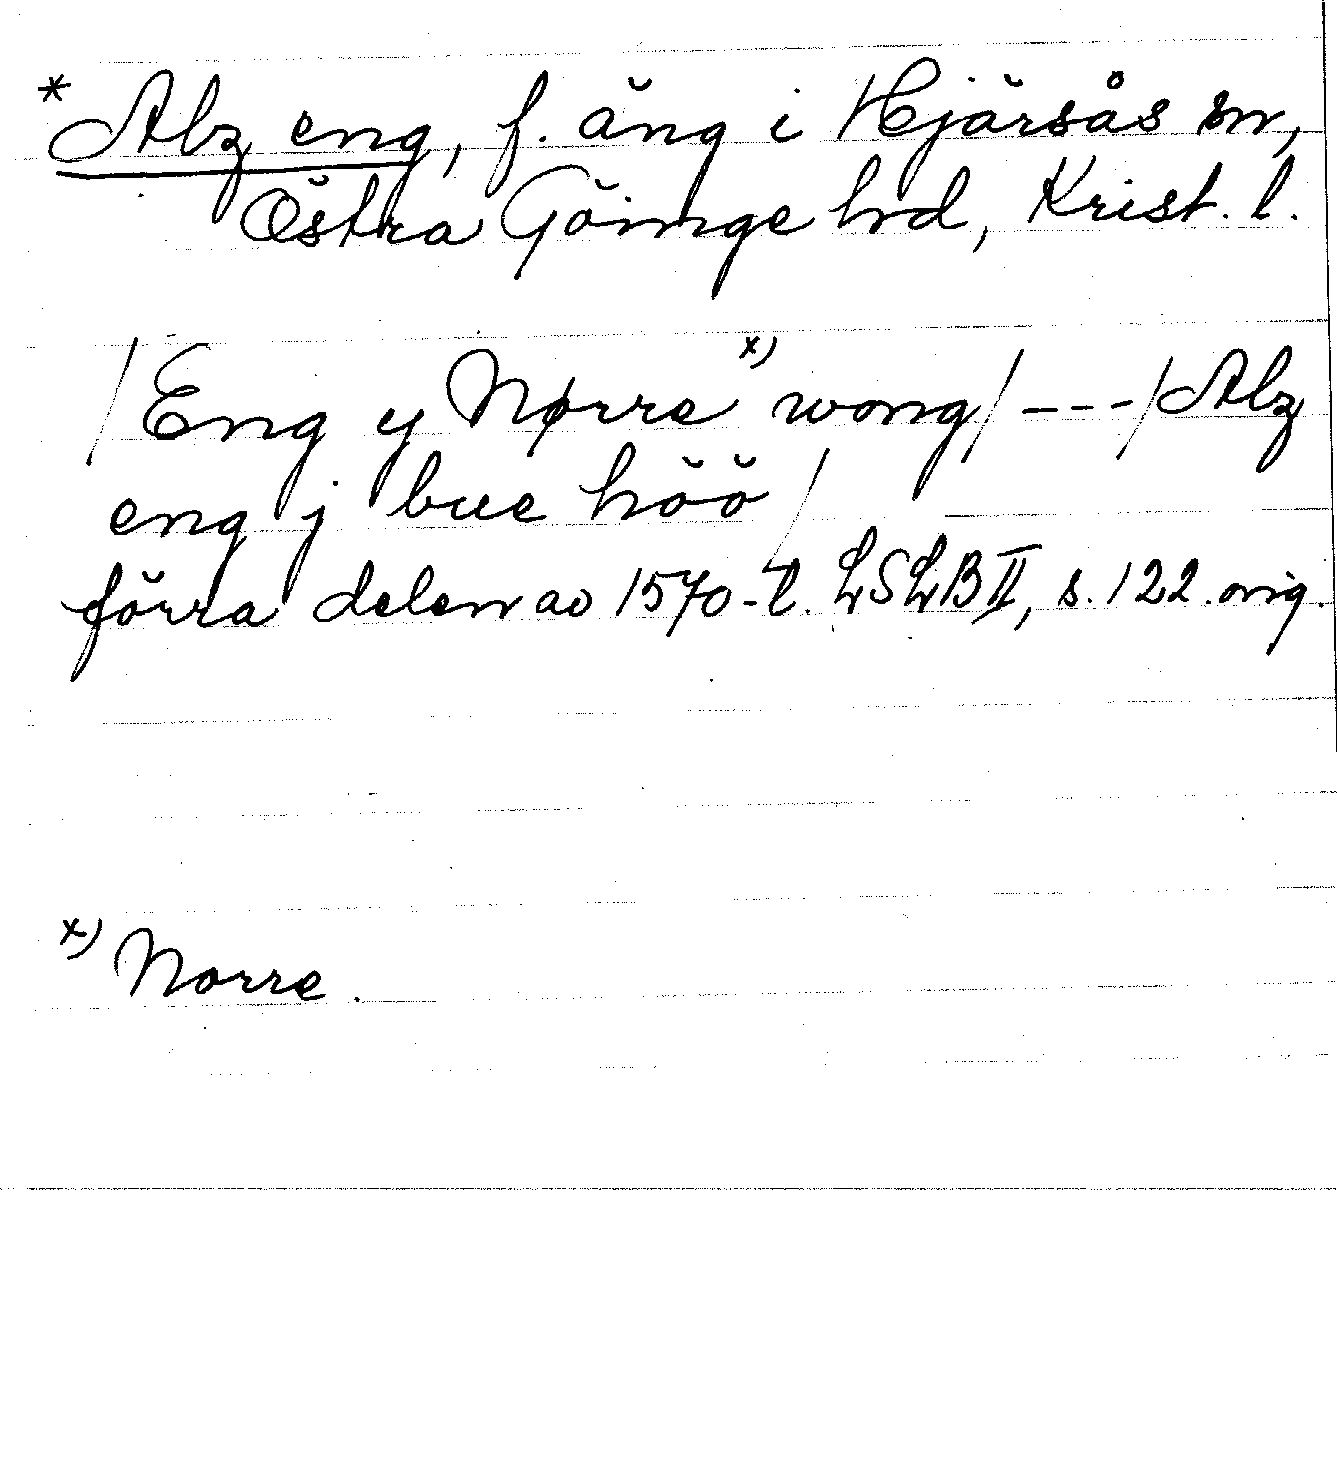 * Alz eng, f. äng i Hjärsås sn,
Östra Göinge hd, Krist. l.
/Eng y Nørre x) wong/ ---/Alz
eng j bue höö/
förra delen av 1570-t. LSLB II, s. 122. orig.
x) Norre.